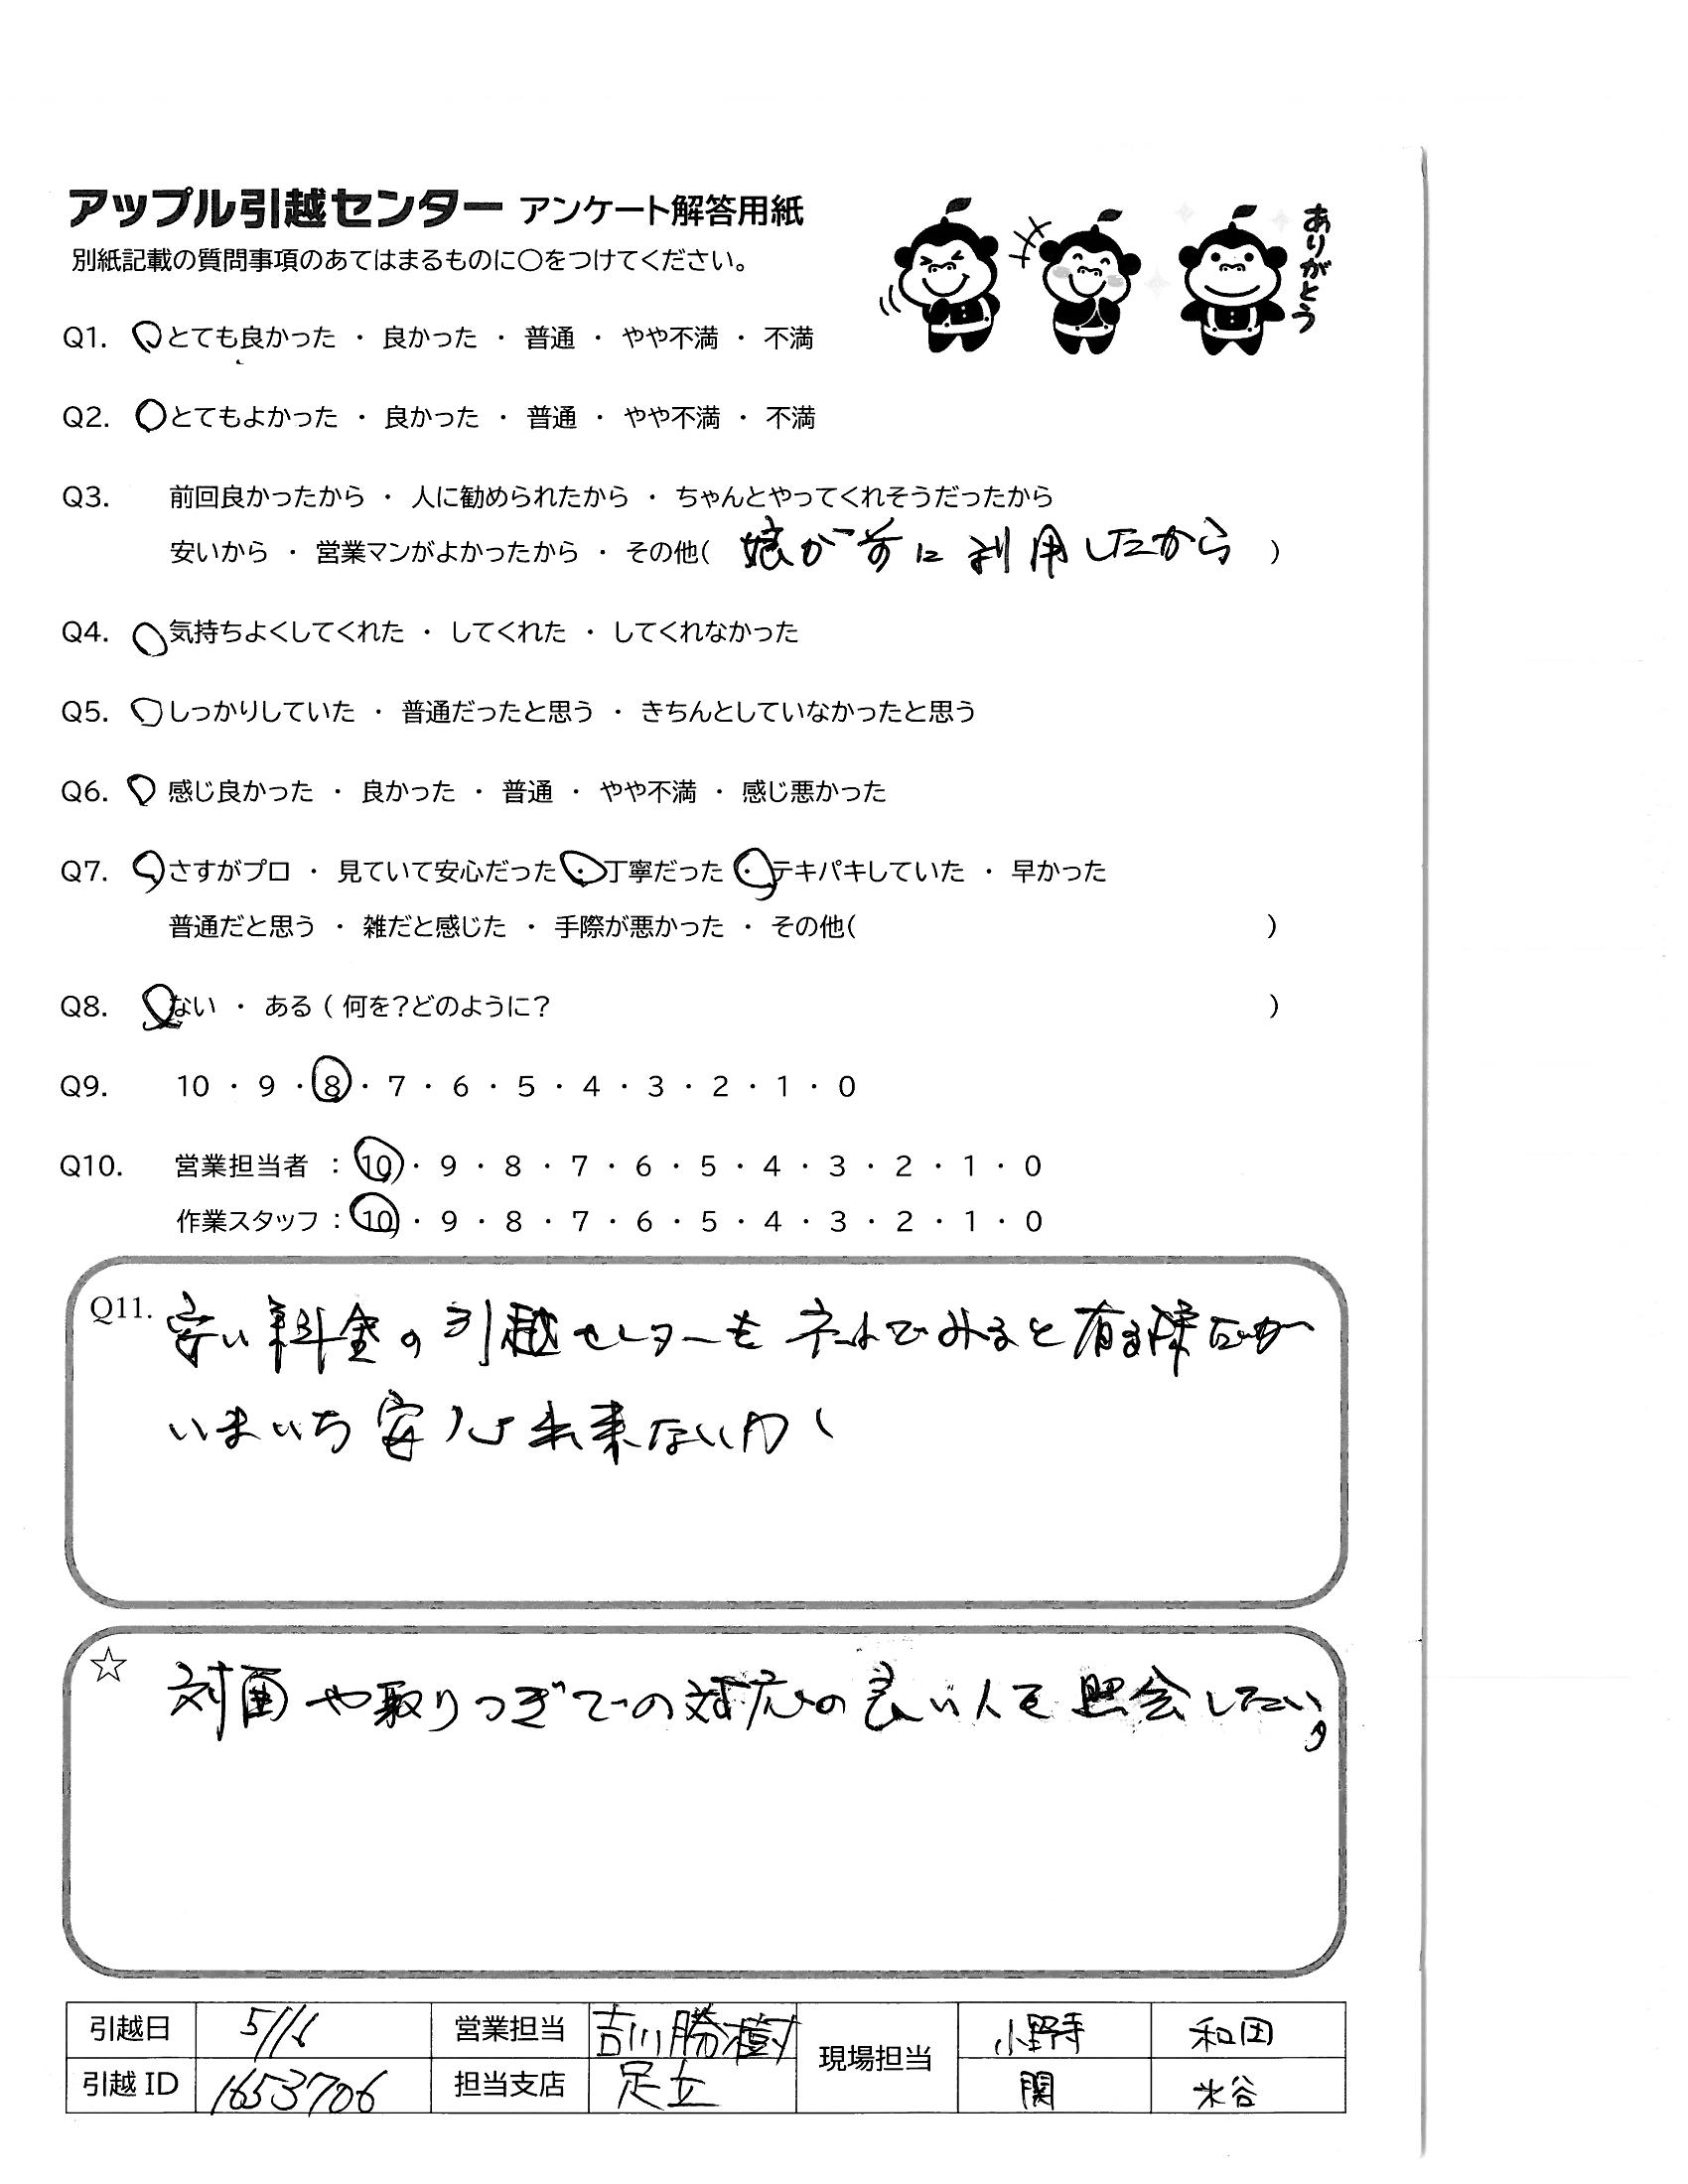 アップル引越センター アンケート解答用紙
別紙記載の質問事項のあてはまるものに〇をつけてください。
ありがとう
Q1. とても良かった ・ 良かった ・ 普通 ・ やや不満 ・ 不満
Q2. とてもよかった ・ 良かった ・ 普通 ・ やや不満 ・ 不満
Q3. 前回良かったから ・ 人に勧められたから ・ ちゃんとやってくれそうだったから
安いから ・ 営業マンがよかったから ・ その他( 娘が前に利用したから )
Q4. 気持ちよくしてくれた ・ してくれた ・ してくれなかった
Q5. しっかりしていた ・ 普通だったと思う ・ きちんとしていなかったと思う
Q6. 感じ良かった ・ 良かった ・ 普通 ・ やや不満 ・ 感じ悪かった
Q7. さすがプロ ・ 見ていて安心だった ・ 丁寧だった ・ テキパキしていた ・ 早かった
普通だと思う ・ 雑だと感じた ・ 手際が悪かった ・ その他( )
Q8. ない ・ ある ( 何を?どのように? )
Q9. 10 ・ 9 ・ 8 ・ 7 ・ 6 ・ 5 ・ 4 ・ 3 ・ 2 ・ 1 ・ 0
Q10. 営業担当者 : 10 ・ 9 ・ 8 ・ 7 ・ 6 ・ 5 ・ 4 ・ 3 ・ 2 ・ 1 ・ 0
作業スタッフ : 10 ・ 9 ・ 8 ・ 7 ・ 6 ・ 5 ・ 4 ・ 3 ・ 2 ・ 1 ・ 0
Q11. 安い料金の引越センターもネットでみると有る様だが
いまいち安心出来ない
☆ 対面や取りつぎでの対応の良い人を照会したい。
引越日 営業担当 吉川勝樹 現場担当 小野寺 和田
引越 ID 1653706 担当支店 足立 関 水谷